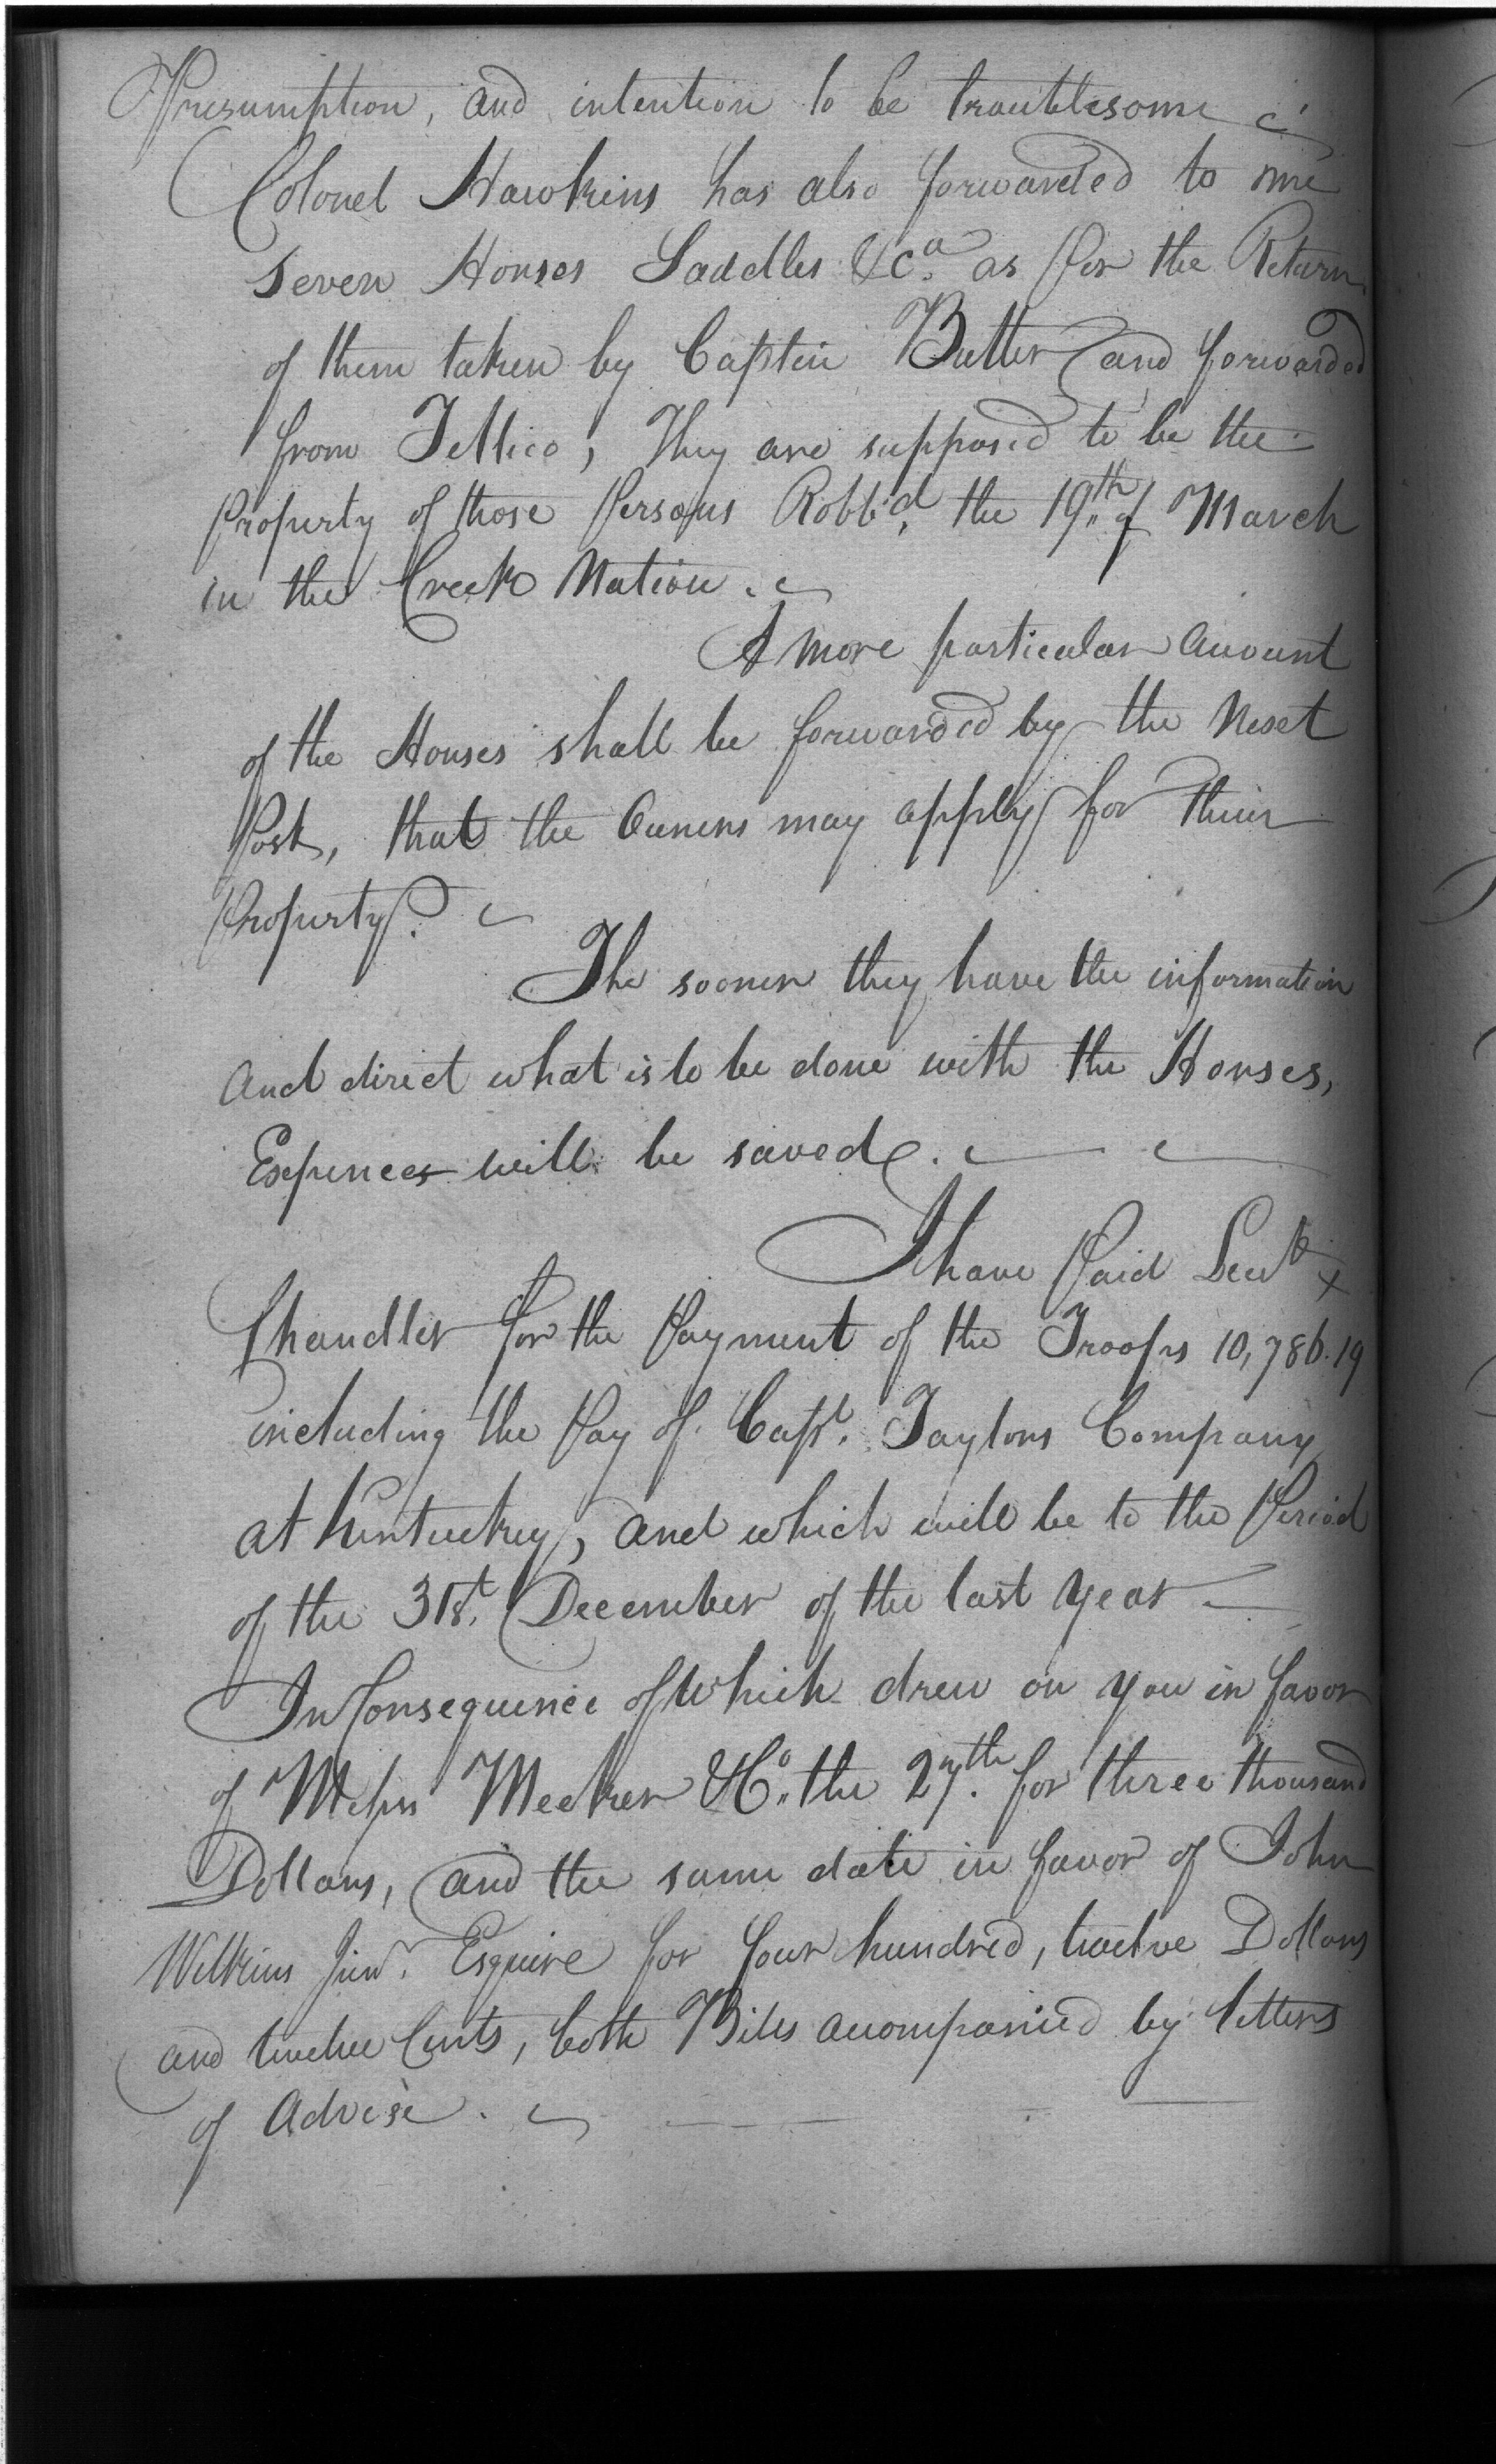 Presumption, and intention to be troublesome
Colonel Hawkins has also forwarded to me
seven Horses Saddles &c.a as per the Return
of them taken by Captin Butler and forwarded
from Tellico; They are supposed to be the
Property of those Persons Robb'd the 19th of March
in the Creek Nation.
A more particular Account
of the Horses shall be forwarded by the Next
Post, that the Owners may apply for their
Property.
The sooner they have the information
And direct what is to be done with the Horses,
Expences will be saved.
I have Paid Leut x
Chandler for the Payment of the Troops 10,786.19
including the Pay of Capt. Taylors Company
at Kentuckey, and which will be to the Period
of the 31st. December of the last Year
In Consequence of Which drew on you in favor
of Messrs Meeker & Co. the 27th. for three thousand
Dollars, and the same date in favor of John
Wilkins Junr. Esquire for four hundred, twelve Dollars
and twelve Cents, both Bills accompanied by letters
of Advise.